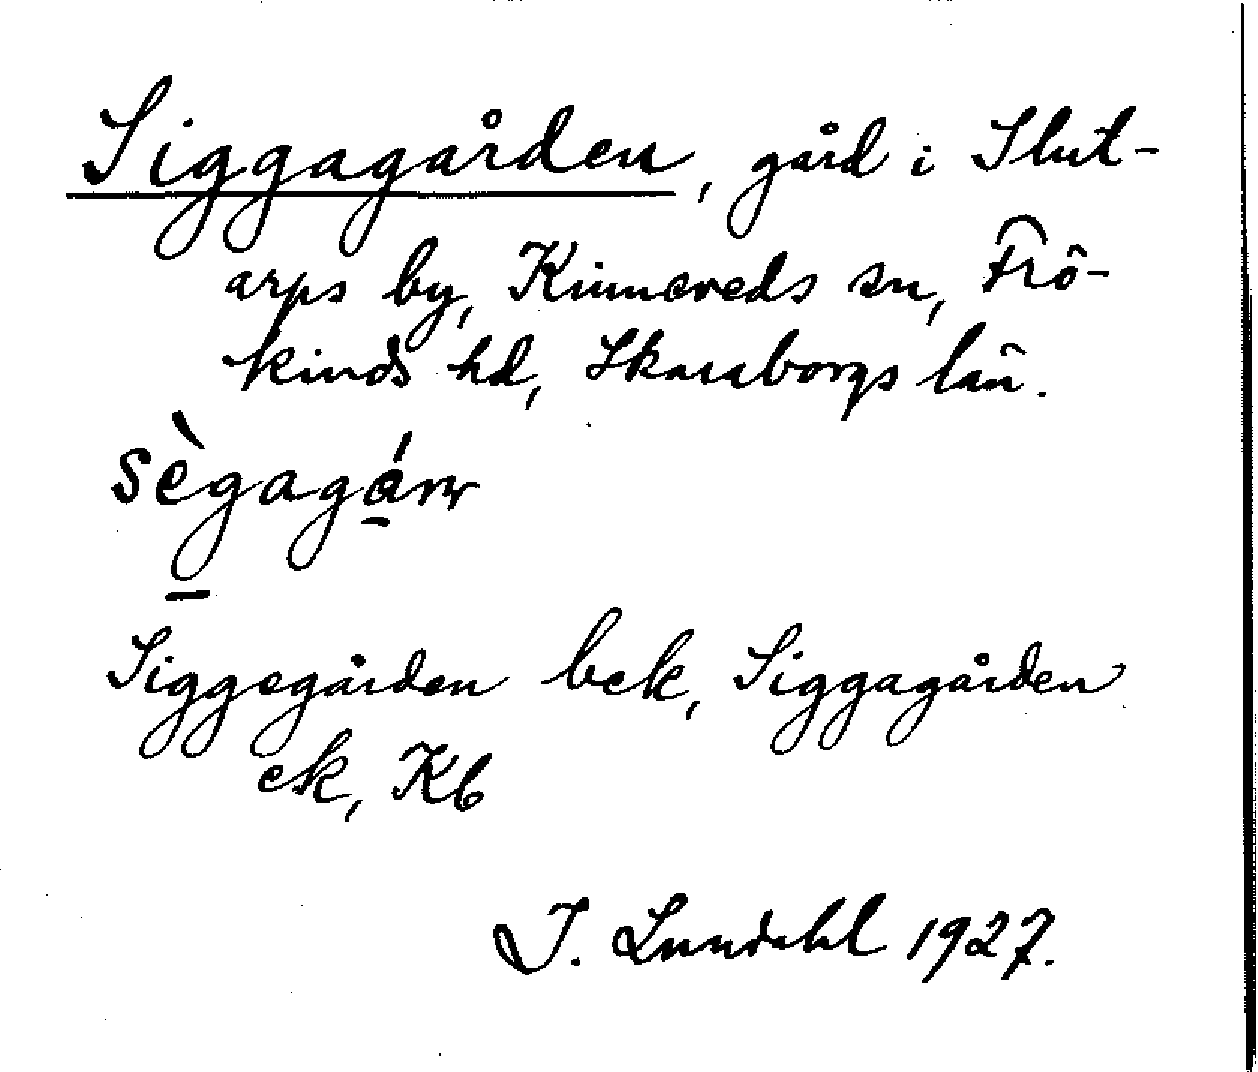 Siggagården, gård i Slut-
arps by, Kinneveds sn, Frö-
kinds hd, Skaraborgs län.
sègagárṇ
Siggegården bek, Siggagården
ek, Kb
I. Lundahl 1927.